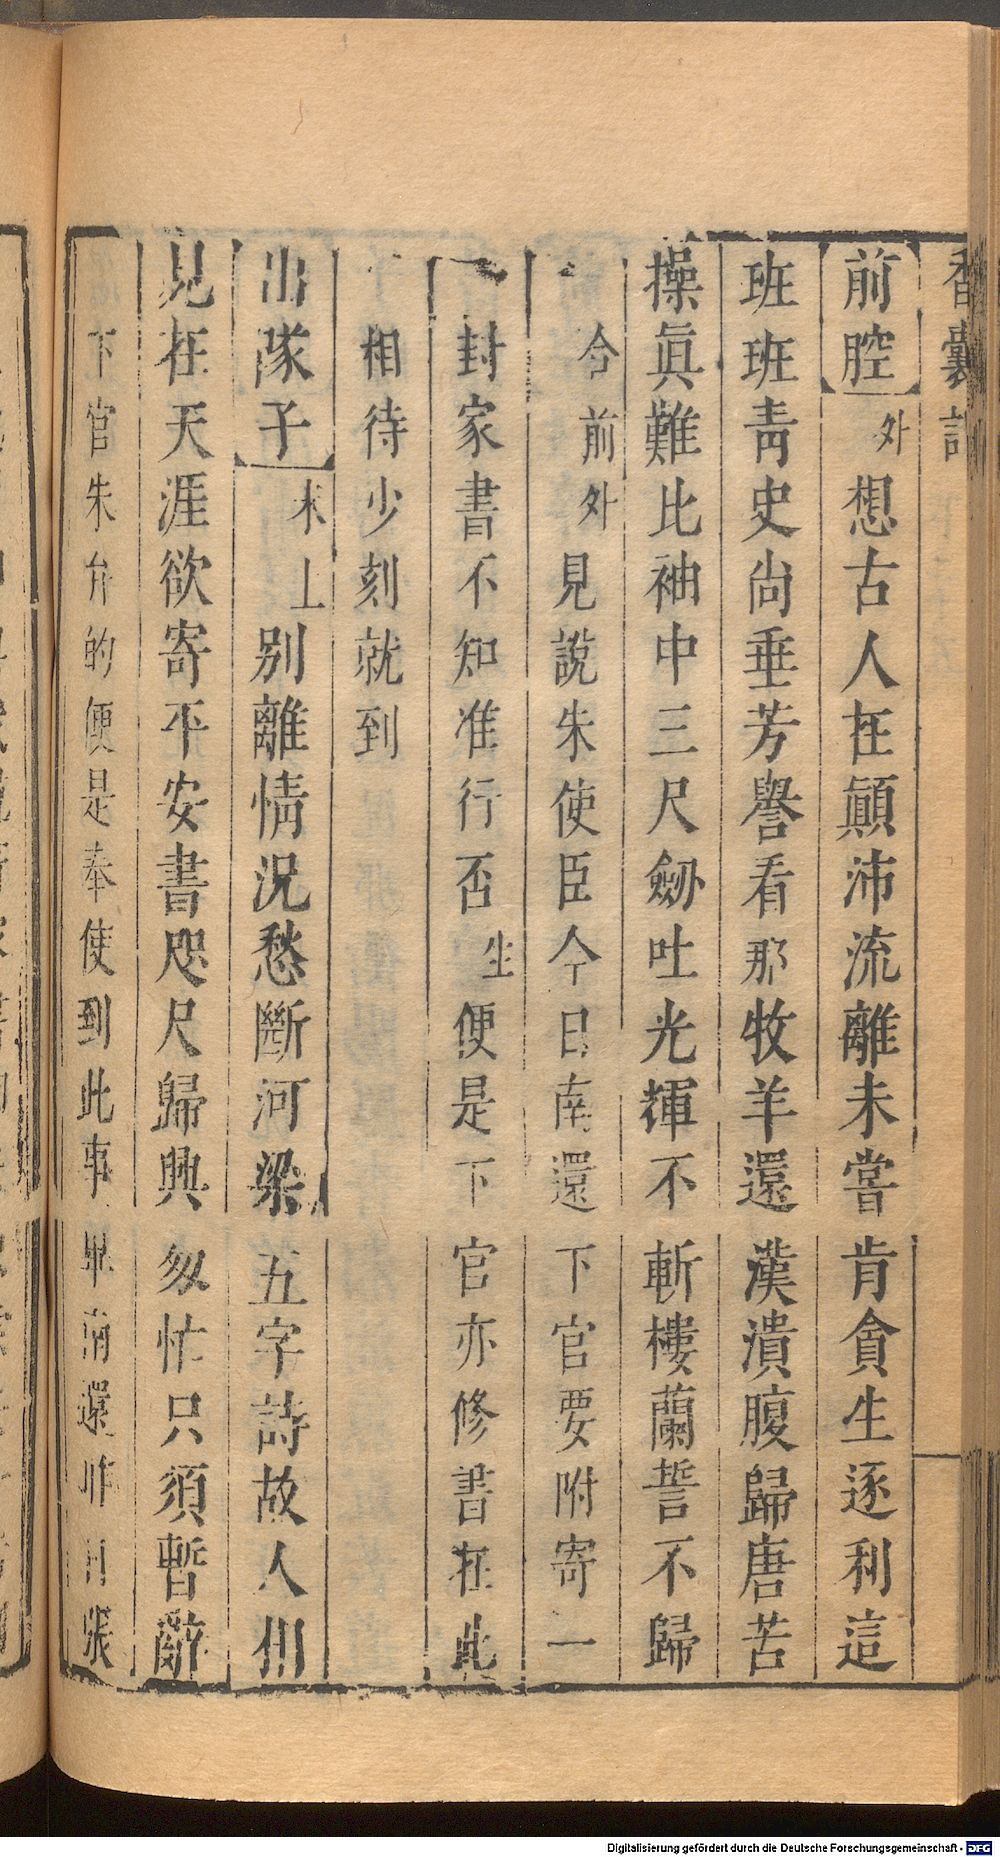 香囊記
前腔外想古人在顚沛流離未嘗肯貪生逐利這
班班靑史尙垂芳譽看那牧羊還漢潰腹歸唐苦
操眞難比袖中三尺劒吐光輝不斬樓蘭誓不歸
今前外見說朱使臣今日南還下官要附寄一
封家書不知准行否生便是下官亦修書在此
相待少刻就到
出隊子末上別離情況愁斷河梁五字詩故人相
見在天涯欲寄平安書咫尺歸興匆忙只須暫辭
下官朱弁的便是奉使到此事畢南還昨日張
Digitalisierung gefördert durch die Deutsche Forschungsgemeinschaft - DFG